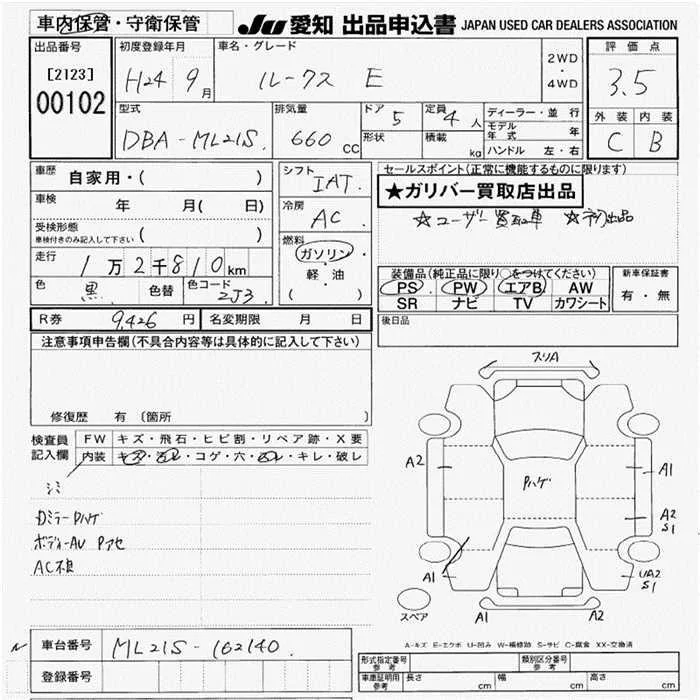 車内保管・守衛保管
JU 愛知 出品申込書 JAPAN USED CAR DEALERS ASSOCIATION
出品番号
[2123]
00102
初度登録年月
H24 9月
車名・グレード
ルークス E
2WD
・
4WD
評価点
3.5
外装 内装
C B
型式
DBA-ML21S
排気量
660 cc
ドア 5
形状
定員 4人
積載 kg
ディーラー・並行
モデル年式 年
ハンドル 左・右
車歴
自家用・( )
車検 年 月( 日)
受検形態
車検付きのみ記入して下さい ( )
走行
1万2千810km
色 黒 色替 色コード 2J3
シフト
IAT
冷房
AC
燃料
ガソリン・
軽・油
( )
セールスポイント(正常に機能するものに限ります)
★ガリバー買取店出品
☆ユーザー買取車 ☆初出品
装備品(純正品に限り○をつけてください)
PS PW エアB AW
SR ナビ TV カワシート
新車保証書
有・無
R券 9,426円 名変期限 月 日
後日品
注意事項申告欄(不具合内容等は具体的に記入して下さい)
修復歴 有 〔箇所 〕
検査員
記入欄
FW キズ・飛石・ヒビ割・リペア跡・X要
内装 キズ・汚レ・コゲ・穴・凹レ・キレ・破レ
シミ
Dミラー Pハゲ
ボディーAU Pアセ
AC不良
スリA
A2
Pハゲ
A1
A2
S1
A1
UA2
S1
スペア
A1
A2
A-キズ E-エクボ U-凹み W-補修跡 S-サビ C-腐食 XX-交換済
車台番号 ML21S-162140
登録番号
形式指定番号
参考
類別区分番号
参考
車庫証明用
参考
長さ cm 幅 cm 高さ cm